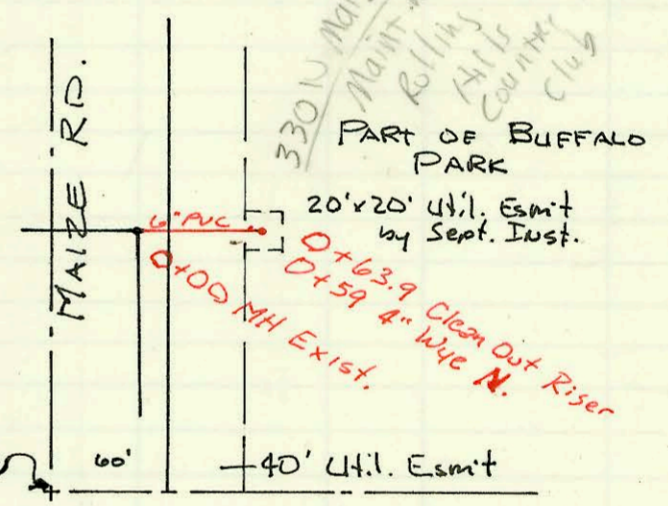 330 N Mai
Maint.
Rolling
Hills
Country
Club
PART OF BUFFALO
PARK
20'x20' Util. Esm't
by Sept. Inst.
MAIZE RD.
6" PVC
0+63.9 Clean Out Riser
0+59 4" Wye N.
0+00 MH Exist.
60'
40' Util. Esm't